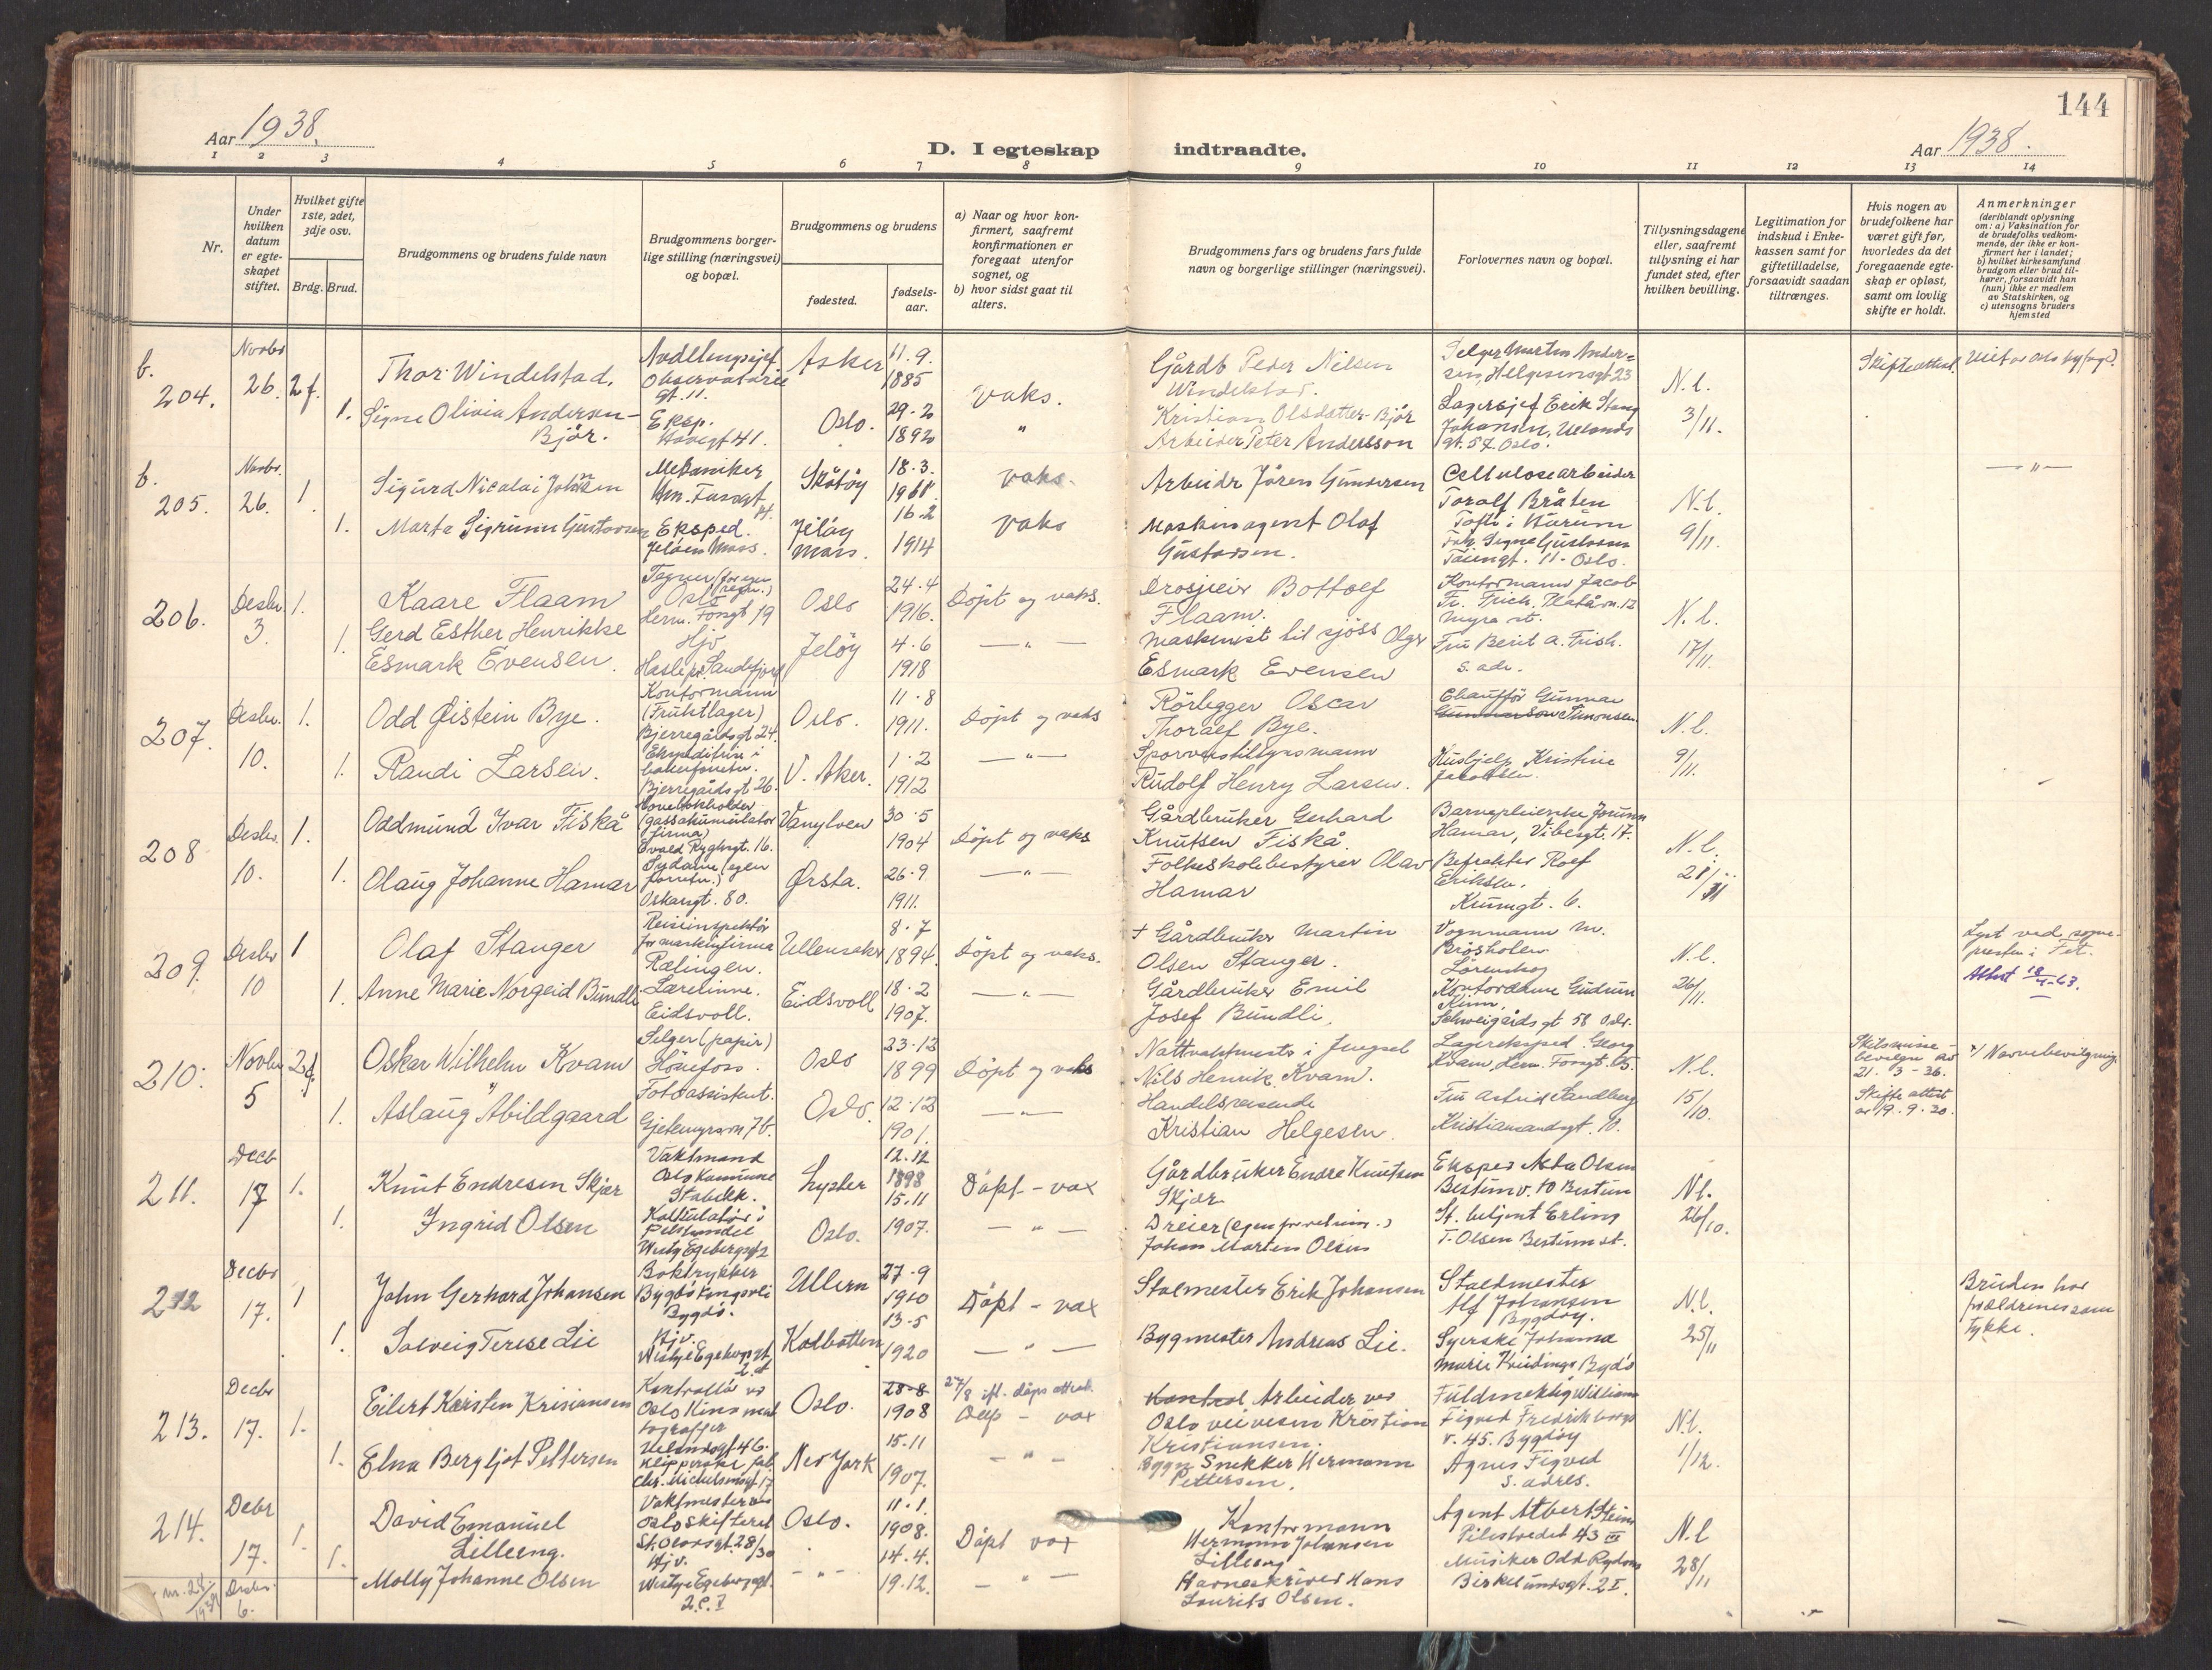 144
Aar 1938.
D. I egteskap indtraadte.
Aar 1938.
1 2 3 4 5 6 7 8 9 10 11 12 13 14
Nr.
Under hvilken datum er egteskapet stiftet.
Hvilket gifte 1ste, 2det, 3dje osv.
Brdg. Brud.
Brudgommens og brudens fulde navn
Brudgommens borgerlige stilling (næringsvei) og bopæl.
Brudgommens og brudens
fødested.
fødselsaar.
a) Naar og hvor konfirmert, saafremt konfirmationen er foregaat utenfor sognet, og
b) hvor sidst gaat til alters.
Brudgommens fars og brudens fars fulde navn og borgerlige stillinger (næringsvei).
Forlovernes navn og bopæl.
Tillysningsdagene eller, saafremt tillysning ei har fundet sted, efter hvilken bevilling.
Legitimation for indskud i Enkekassen samt for giftetilladelse, forsaavidt saadan tiltrænges.
Hvis nogen av brudefolkene har været gift før, hvorledes da det foregaaende egteskap er opløst, samt om lovlig skifte er holdt.
Anmerkninger
(deriblandt oplysning om: a) Vaksination for de brudefolks vedkommende, der ikke er konfirmert her i landet;
b) hvilket kirkesamfund brudgom eller brud tilhører, forsaavidt han (hun) ikke er medlem av Statskirken, og
c) utensogns bruders hjemsted
b.
204. 26. 2f.
Thor Windelstad.
gt. 11.
Asker
11.9. 1885
vaks.
Gårdb Peder Nilsen
Windelstad.
Selger Martin Andersen, Helgesensgt 23
N.l.
3/11.
1.
Signe Olivia Andersen-
Bjør.
Eksp.
Oslo.
29.2 1892
"
Arbeider Peter Andersson
Lagersjef Erik Stang
Johansen, Uelands
gt. 57. Oslo.
b.
205. 26. 1.
Sigurd Nicolai Johnsen
Mekaniker
Skåtøy
18.3.
vaks.
Arbeidr Jören Gundersen
Cellulosearbeider
Toralf Bråten
Tofte i Hurum
N.l.
9/11.
— " —
1.
Marta Sigrunn Gustavsen
Eksped.
Jeløen Moss.
Jeløy
Moss.
16.2
1914
vaks
Maskinagent Olaf
Gustavsen.
Frk. Signe Gustavsen
Tøiengt. 11. Oslo.
206. Desbr. 3. 1.
Kaare Flaam
Oslo
Herm. Fossgt 19
Oslo
24.4
1916.
Döpt og vaks.
Drosjeeier Bottolf
Flaam.
Kontormann Jacob
N.l.
17/11.
1.
Gerd Esther Henrikke
Esmark Evensen.
Hjv
Hasle pr. Sandefjord
Jeløy
4.6
1918
— " —
maskinist til sjöss Olger
Esmark Evensen
s. adr.
207. Desbr. 10. 1.
Odd Øistein Bye.
Kontormann
(Fruktlager)
Bjerregårdsgt 24.
Oslo.
11.8
1911.
Döpt og vaks
Rörlegger Oscar
Thoralf Bye.
Chauffør Gunnar
Simonsen
N.l.
9/11.
1.
Randi Larsen.
Ekspeditrise i
bakerforretn.
Bjerregårdsgt 26.
V. Aker.
1.2
1912
— " —
Rudolf Henry Larsen.
Hushjelp Kristine
Jacobsen.
208 Desbr. 10. 1.
Oddmund Ivar Fiskå
(gassakumulator
firma)
Evald Ryghsgt. 16.
Vanylven
30.5
1904
Döpt og vaks
Gårdbruker Gerhard
Knutsen Fiskå.
Barnepleierske Jorunn
Hamar, Vibesgt. 17.
N.l.
21/11
1.
Olaug Johanne Hamar
Sydame (egen
forretn.)
Oskarsgt. 80.
Ørsta.
26.9
1911.
— " —
Folkeskolebestyrer Olav
Hamar
Befrakter Rolf
Eriksen.
209. Desbr 10 1
Olaf Stanger
Reiseinspektör
for maskinfirma
Rælingen.
Ullensaker
8.7
1894.
Döpt og vaks.
+ Gårdbruker Martin
Olsen Stanger.
Vognmann M.
Lørenskog
N.l.
26/11.
Lyst ved sogne-
presten i Fet.
1.
Anne Marie Norgeid Bundli
Lærerinne.
Eidsvoll.
Eidsvoll
18.2
1907.
— " —
Gårdbruker Emil
Josef Bundli.
Kontordame Gudrun
Schweigårdsgt 58 Oslo.
210. Novbr. 5 2f.
Oskar Wilhelm Kvam
Selger (papir)
Hönefoss.
Oslo
23.12
1899
Döpt og vaks
Nils Henrik Kvam.
Lagereksped. Georg
Kvam,
N.l.
15/10.
Skilsmisse-
bevilgn av
21.3-36.
Skifte attest
av 19.9.30.
*/ Navnebevilgning
1.
Aslaug Abildgaard
Fotoassistent.
Gjetemyrsvn 7b.
Oslo.
12.12
1901.
— " —
Handelsreisende
Kristian Helgesen.
Fru Astrid Sandberg
Kristiansandsgt. 10.
211. Decb 17 1.
Knut Endresen Skjær
Vaktmand
Oslo Kommune
Stabekk.
Lyster
12.12
1898
Döpt – vax
Gårdbruker Endre Knutsen
Skjær
Eksped
Bestumv. 10 Bestun
N.l.
26/10.
1.
Ingrid Olsen
Kalkulatør i
Pelshandel
Oslo.
15.11
1907.
— " —
Dreier
Johan Morten Olsen
St. betjent Erling
T. Olsen Bestum st.
212 Decbr 17. 1
John Gerhard Johansen
Boktrykker
Bygdø Kongsvei
Bygdø.
Ullern
27.9
1910
Döpt – vax
Stalmester Erik Johansen
Staldmester
Alf Johansen
Bygdøy.
N.l.
25/11
Bruden har
forældrenes sam
tykke.
1.
Solveig Terese Lie
Hjv.
Kolbotten
13.5
1920
— " —
Bygmester Andreas Lie.
Syerske Johanna
Marie
213. Decbr 17. 1.
Eilert Karsten Krisiansen
Kontrollør vd
Oslo Kinemat
ografer
Uelandsgt 46.
Oslo.
28.8
1908
27/8 ifl. dåps attest.
Döp – vax
Arbeider ved
Oslo veivesen Kristian
Kristiansen.
Fuldmektig William
Figved Fredriksborgs
v. 45. Bygdøy
N.l.
1/12.
1.
Elna Bergljot Pettersen
Chr. Michelsensgt 17
New York
15.11
1907.
— " —
Bygn Snekker Hermann
Pettersen.
Agnes Figved
s. adres.
214. Debr 17. 1.
David Emanuel
Lilleeng.
Vaktmester vd
Oslo Skifteret
St. Olavsgt. 28/30
Oslo.
11.1.
1908.
Döpt vax
Kontormann
Hermann Johansen
Lilleeng
Agent Albert Steine
Pilestredet 43 III
N.l
28/11
1.
Molly Johanne Olsen
Hjv.
— " —
14.4.
19.12.
— " —
Havneskriver Hans
Lourits Olsen.
Musiker Odd Rydning
Birkelundsgt. 2 I.
Desbr.
6.